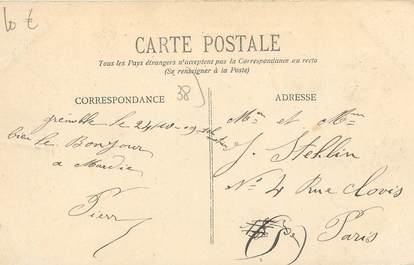 10 €
CARTE POSTALE
Tous les Pays étrangers n'acceptent pas la Correspondance au recto
(Se renseigner à la Poste)
CORRESPONDANCE
38
ADRESSE
grenoble le 24
bien le Bonjour
a Mardie
Pierr
Mr et Mme
J. Stehlin
No 4 Rue Clovis
Paris